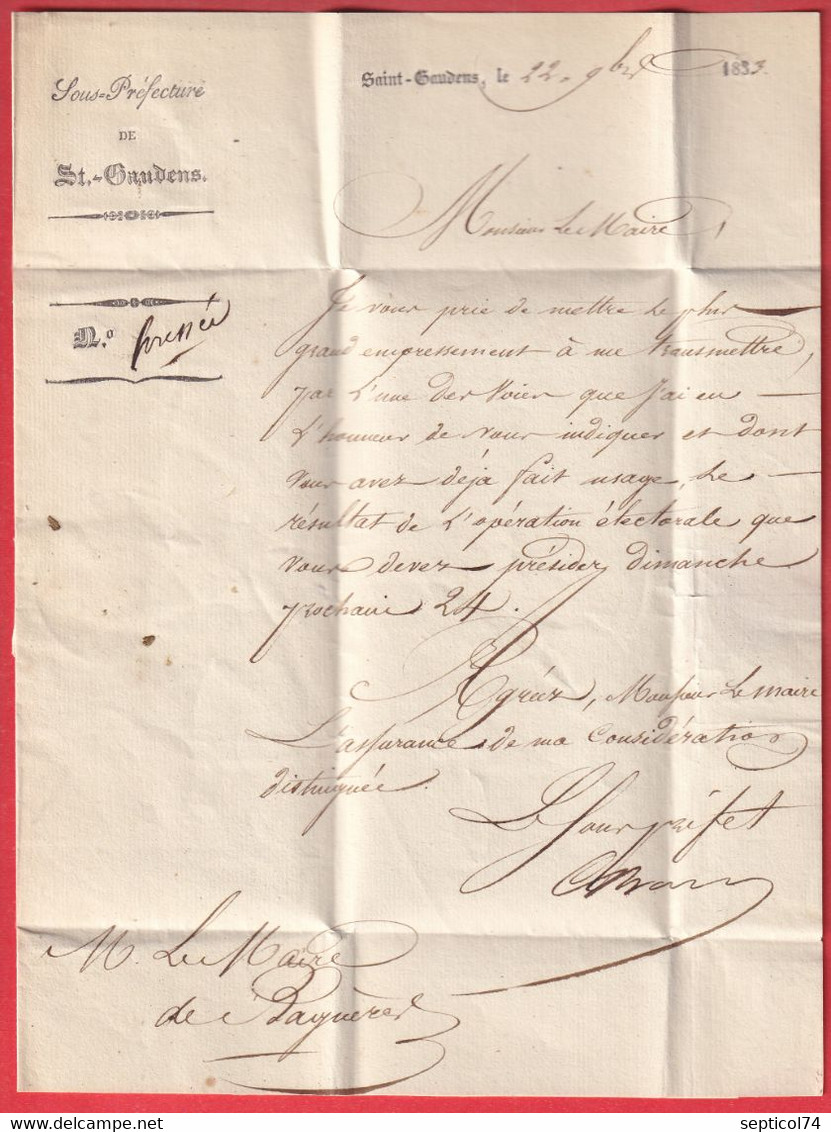 Sous-Préfecture
DE
St.-Gaudens.
Saint-Gaudens, le 22 9bre 1833.
Monsieur Le Maire,
N.o pressée
Je vous prie de mettre le plus
grand empressement à me transmettre,
par L'une des Voies que J'ai eu
L'honneur de vous indiquer et dont
Vous avez déja fait usage, Le
résultat de L'opération électorale que
Vous devez présider dimanche
prochain 24.
Agréez, Monsieur Le maire
L'assurance de ma Considération
distinguée.
Le Sous préfet
M. Le Maire
de Bagnères
septicol74